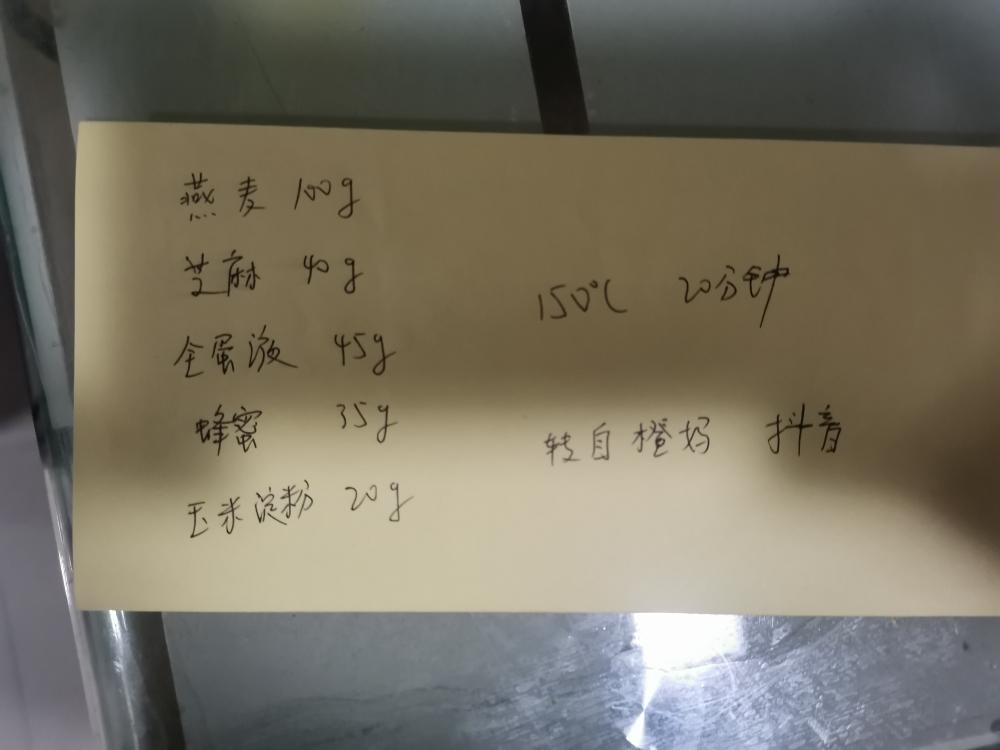 燕麦 100g
芝麻 40g
全蛋液 45g
蜂蜜 35g
玉米淀粉 20g
150℃ 20分钟
转自橙妈 抖音